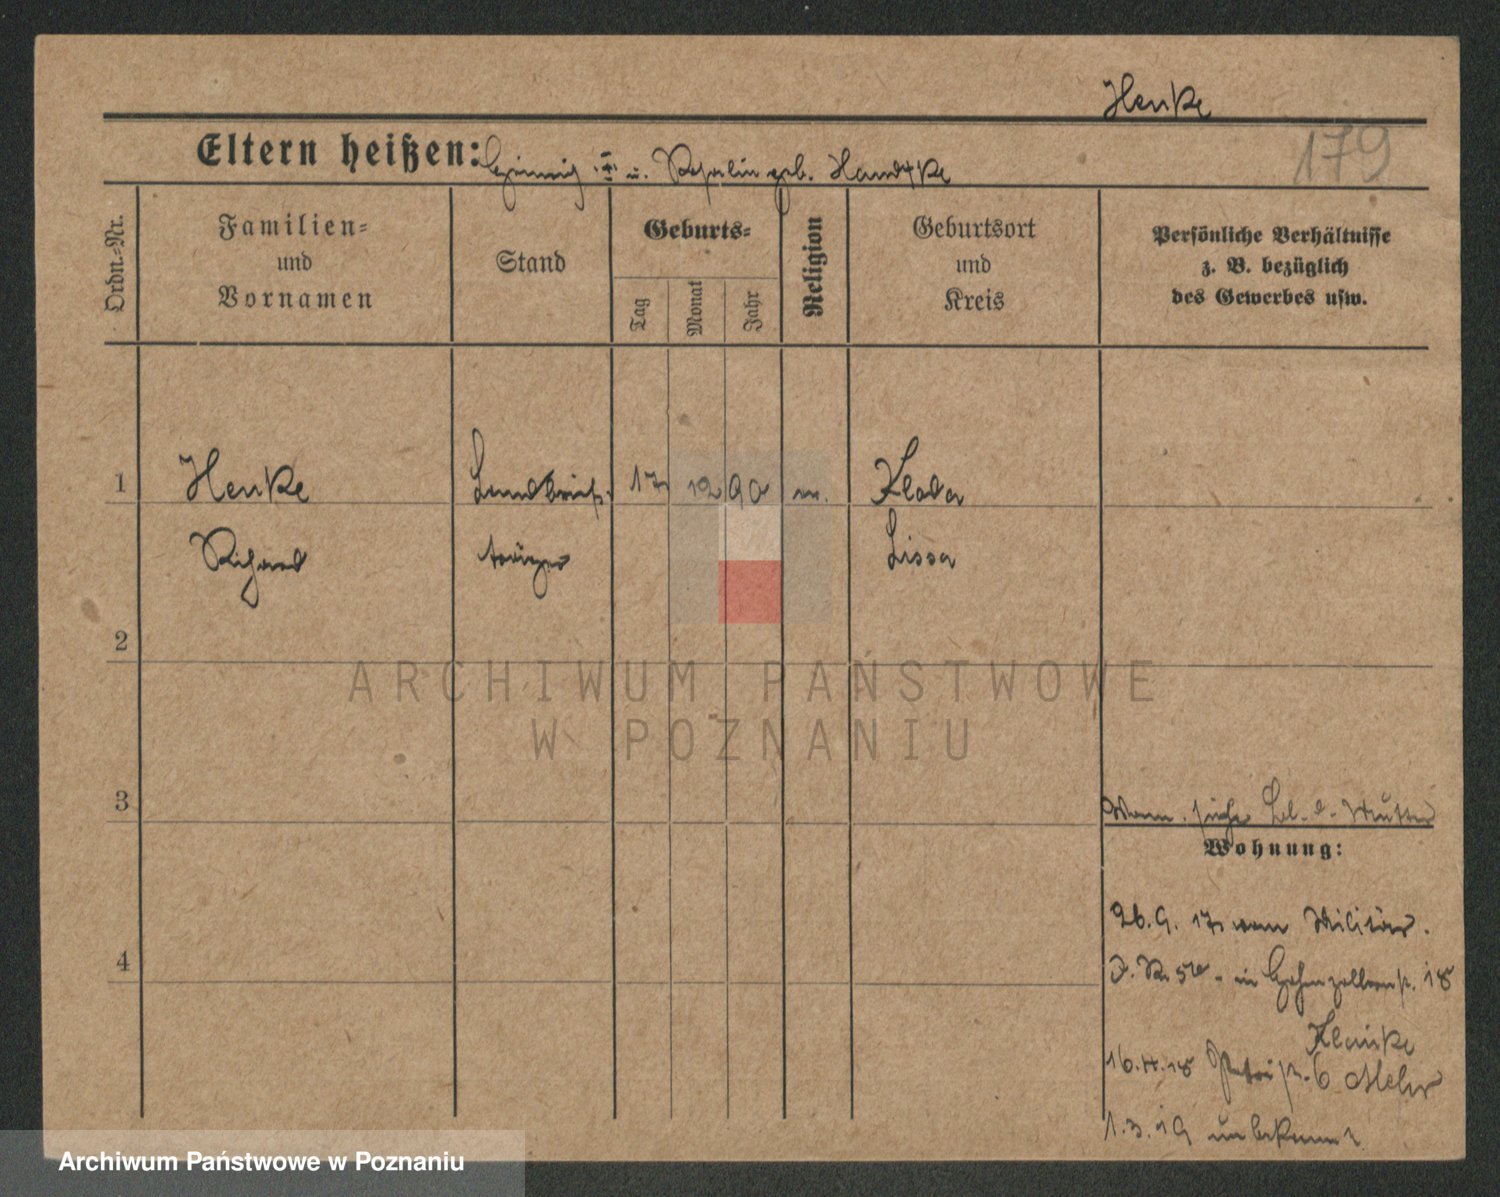 Henke
Eltern heißen: Heinrich u. Rosalie geb. Handtke
179
Ordn.=Nr.
Familien=
und
Vornamen
Stand
Geburts=
Tag
Monat
Jahr
Religion
Geburtsort
und
Kreis
Persönliche Verhältnisse
z. B. bezüglich
des Gewerbes usw.
1 Henke Landbrief 17 12 90 Kloda
Richard träger Lissa
2
ARCHIWUM PAŃSTWOWE
W POZNANIU
3
siehe Bl. d. Mutter
Wohnung:
26.9.17 vom Militär.
in Hohenzollernstr. 18
4
Klinke
16.4.18 Petristr. 6 Mehr
1.3.19 unbekannt
Archiwum Państwowe w Poznaniu